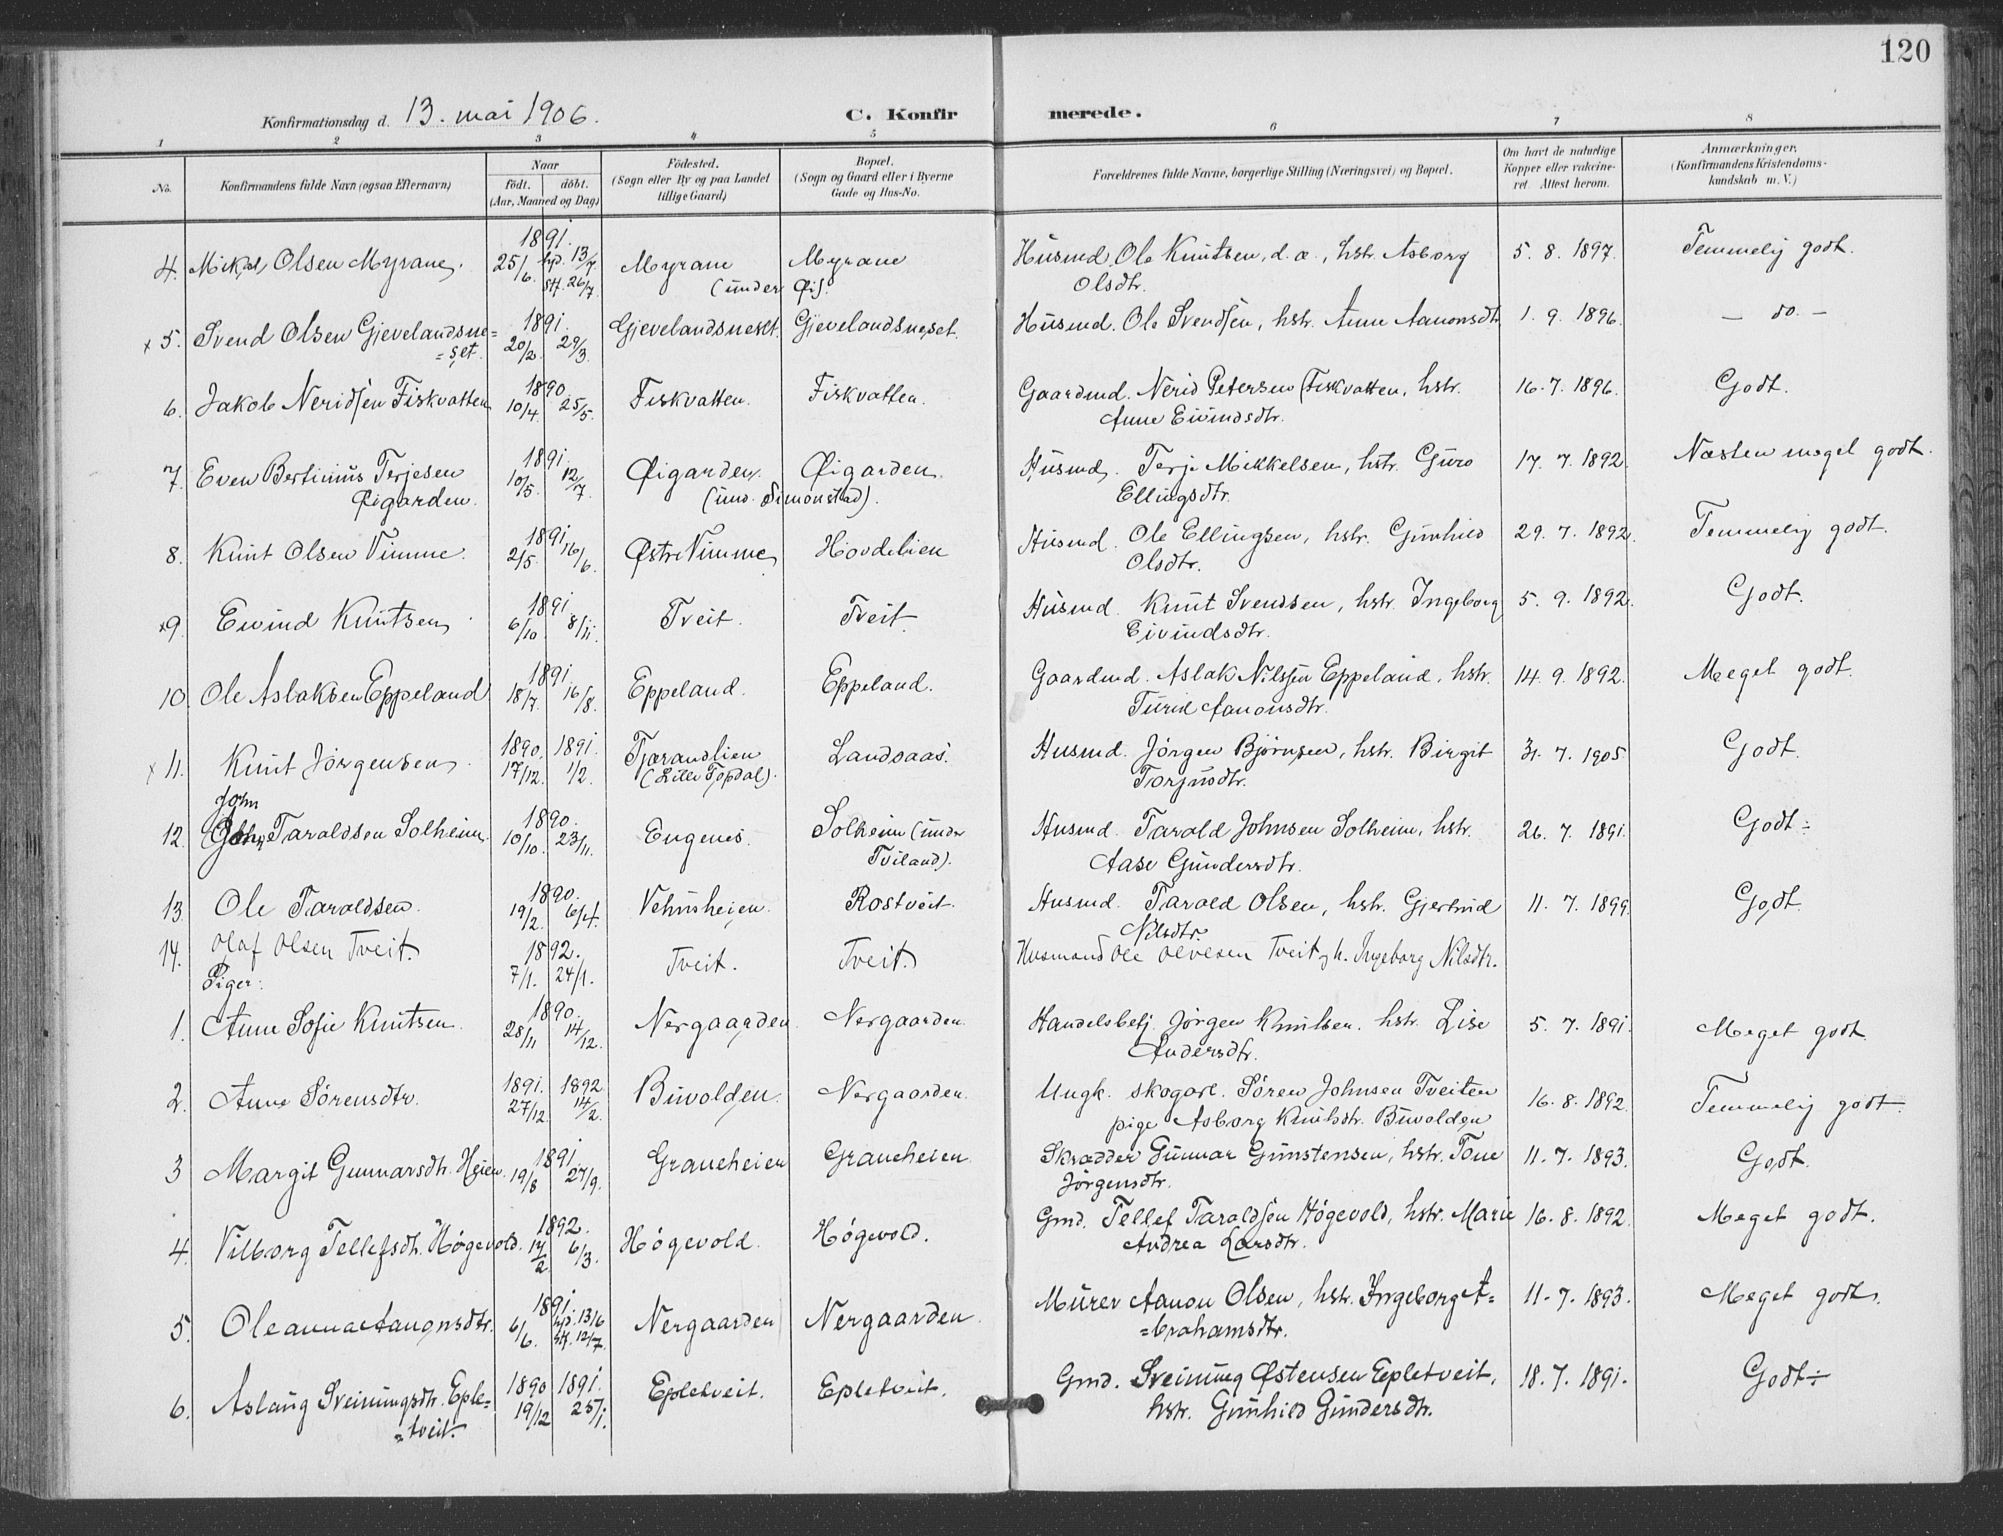 120
Konfirmationsdag d. 13. mai 1906.
C. Konfirmerede.
1 2 3 4 5 6 7 8
No.
Konfirmandens fulde Navn (ogsaa Efternavn)
Naar
födt. döbt.
(Aar, Maaned og Dag)
Födested.
(Sogn eller By og paa Landet
tillige Gaard)
Bopæl.
(Sogn og Gaard eller i Byerne
Gade og Hus-No.
Forældrenes fulde Navne, borgerlige Stilling (Næringsvei) og Bopæl.
Om havt de naturlige
Kopper eller vakcine-
ret. Attest herom.
Anmærkninger,
(Konfirmandens Kristendoms-
kundskab m. V.)
1891.
4. Mikal Olsen Myrane. 25/6. hjd. 13/7 stf. 26/7. Myrane Myrane Husmd. Ole Knutsen, d. a., hstr. Asborg 5. 8. 1897. Temmelig godt.
(under Øi). Olsdtr.
1891.
x 5. Svend Olsen Gjevelandsne= 20/2. 29/3. Gjevelandsneset. Gjevelandsneset. Husmd. Ole Svendsen, hstr. Anne Aanonsdtr. 1. 9. 1896. — do. —
= set.
1890.
6. Jakob Neridsen Fiskvatten 10/4. 25/5. Fiskvatten. Fiskvatten. Gaardmd. Nerid Petersen Fiskvatten, hstr. 16. 7. 1896. Godt.
Anne Eivindsdtr.
1891.
7. Even Bertinius Terjesen 10/5. 12/7. Øigarden. Øigarden. Husmd. Terje Mikkelsen, hstr. Guro 17. 7. 1892. Næsten meget godt.
Øigarden. (und. Simonstad). Ellingsdtr.
1891.
8. Knut Olsen Vimme. 2/5. 16/6. Østre Vimme Hovdelien Husmd. Ole Ellingsen, hstr. Gunhild 29. 7. 1892. Temmelig godt.
Olsdtr.
1891.
x 9. Eivind Knutsen 6/10. 8/11. Tveit. Tveit. Husmd. Knut Svendsen, hstr. Ingeborg 5. 9. 1892. Godt.
Eivindsdtr.
1891.
10 Ole Aslaksen Eppeland 18/7. 16/8. Eppeland. Eppeland. Gaardmd. Aslak Nilssen Eppeland, hstr. 14. 9. 1892. Meget godt.
Turid Aanonsdtr.
1890. 1891.
x 11. Knut Jörgensen. 17/12. 1/2. Tjarandlien Landsaas. Husmd. Jörgen Björnsen, hstr. Birgit 31. 7. 1905 Godt.
(Lille Topdal). Torjusdtr.
John 1890.
12. Taraldsen Solheim 10/10. 23/11. Engenes. Solheim (under Husmd. Tarald Johnsen Solheim, hstr. 26. 7. 1891. Godt ÷
Tviland). Aase Gundersdtr.
1890.
13 Ole Taraldsen. 19/2. 6/4. Vehusheien. Rostveit. Husmd. Tarald Olsen, hstr. Gjertrud 11. 7. 1899. Godt.
Nilsdtr.
14. Olaf Olsen Tveit. 1892. 7/1. 24/1. Tveit. Tveit. Husmand Ole Olvesen Tveit, h. Ingeborg Nilsdtr.
Piger:
1890.
1. Anne Sofie Knutsen 28/11 14/12. Nergaarden Nergaarden. Handelsbetj. Jörgen Knutsen. hstr. Lise 5. 7. 1891. Meget godt.
Andersdtr.
1891. 1892
2. Anne Sörensdtr. 27/12. 14/2. Buvolden. Nergaarden. Ungk. skogarb. Sören Johnsen Tveiten 16. 8. 1892. Temmelig godt.
pige Asborg Knutsdtr. Buvolden
1891.
3 Margit Gunnarsdtr. Heien. 19/8 27/9. Graneheien Graneheien Skrædder Gunnar Gunstensen, hstr. Tone 11. 7. 1893. Godt.
Jörgensdtr.
1892.
4. Vilborg Tellefsdtr. Høgevold. 14/2 6/3. Høgevold. Høgevold. Gmd. Tellef Taraldsen Høgevold, hstr. Marie 16. 8. 1892. Meget godt.
Andrea Larsdtr.
1891.
5. Oleanna Aanonsdtr. 6/6. hjd. 13/6 stf. 12/7. Nergaarden Nergaarden. Murer Aanon Olsen, hstr. Ingeborg A= 11. 7. 1893. Meget godt.
=brahamsdtr.
1890 1891.
6. Aslaug Sveinungsdtr. Eple= 19/12 25/1. Epletveit. Epletveit. Gmd. Sveinung Østensen Epletveit, 18. 7. 1891. Godt ÷
=tveit. hstr. Gunhild Gundersdtr.